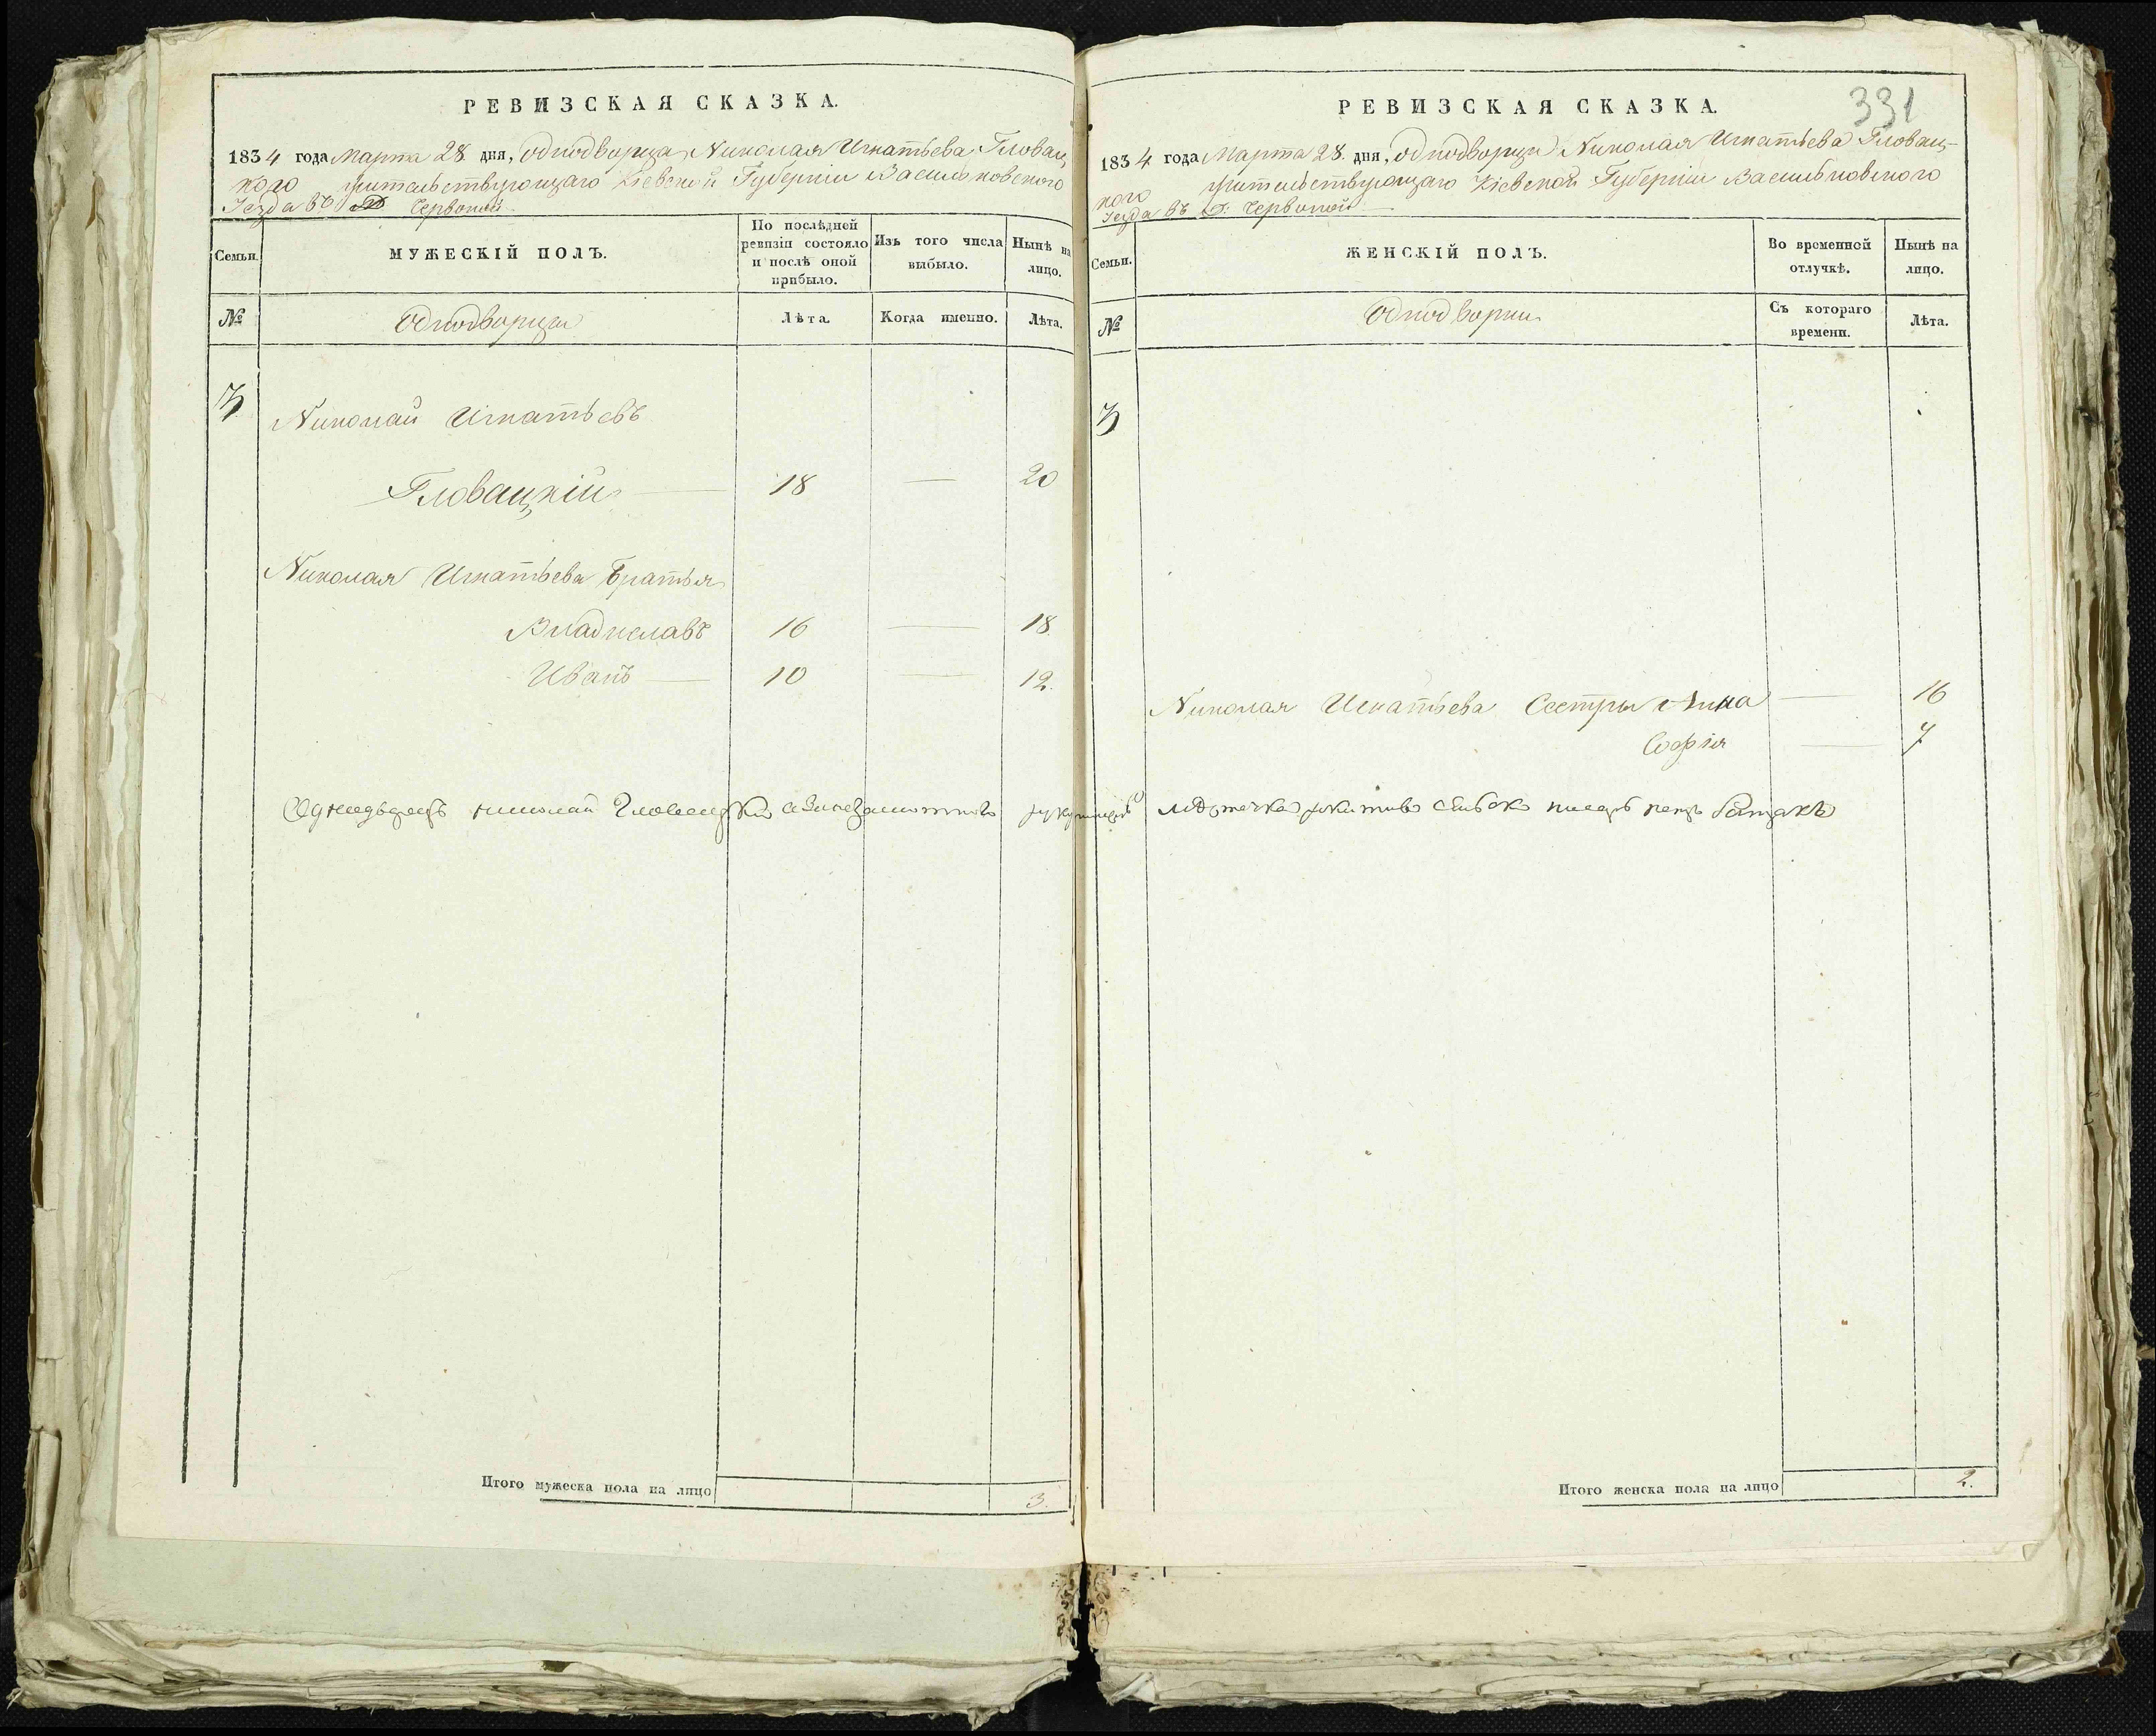 РЕВИЗСКАЯ СКАЗКА.
1834 года Марта 28 дня, однодворца Николая Игнатьева Гловац
кого жительствующаго Кіевской Губерніи Васильковского
Уезда въ Д: Червоной
Семьи.
МУЖЕСКІЙ ПОЛЪ.
По послѣдней ревизіи состояло и послѣ оной прибыло.
Изъ того числа выбыло.
Нынѣ на лицо.
№
Однодворцы
Лѣта.
Когда именно.
Лѣта.
3
Николай Игнатьевъ
Гловацкій — 18 — 20
Николая Игнатьева братья
Владиславъ 16 — 18.
Иванъ — 10 — 12.
николай
Итого мужеска пола на лицо
3.
331
РЕВИЗСКАЯ СКАЗКА.
1834 года Марта 28. дня, однодворца Николая Игнатьева Гловац-
кого жительствующаго Кіевской Губерніи Васильковского
Уезда въ Д: Червоной
Семьи.
ЖЕНСКІЙ ПОЛЪ.
Во временной отлучкѣ.
Нынѣ на лицо.
№
Однодворки
Съ котораго времени.
Лѣта.
3
Николая Игнатьева Сестры Анна — 16
Софія — 7
Итого женска пола на лицо
2.